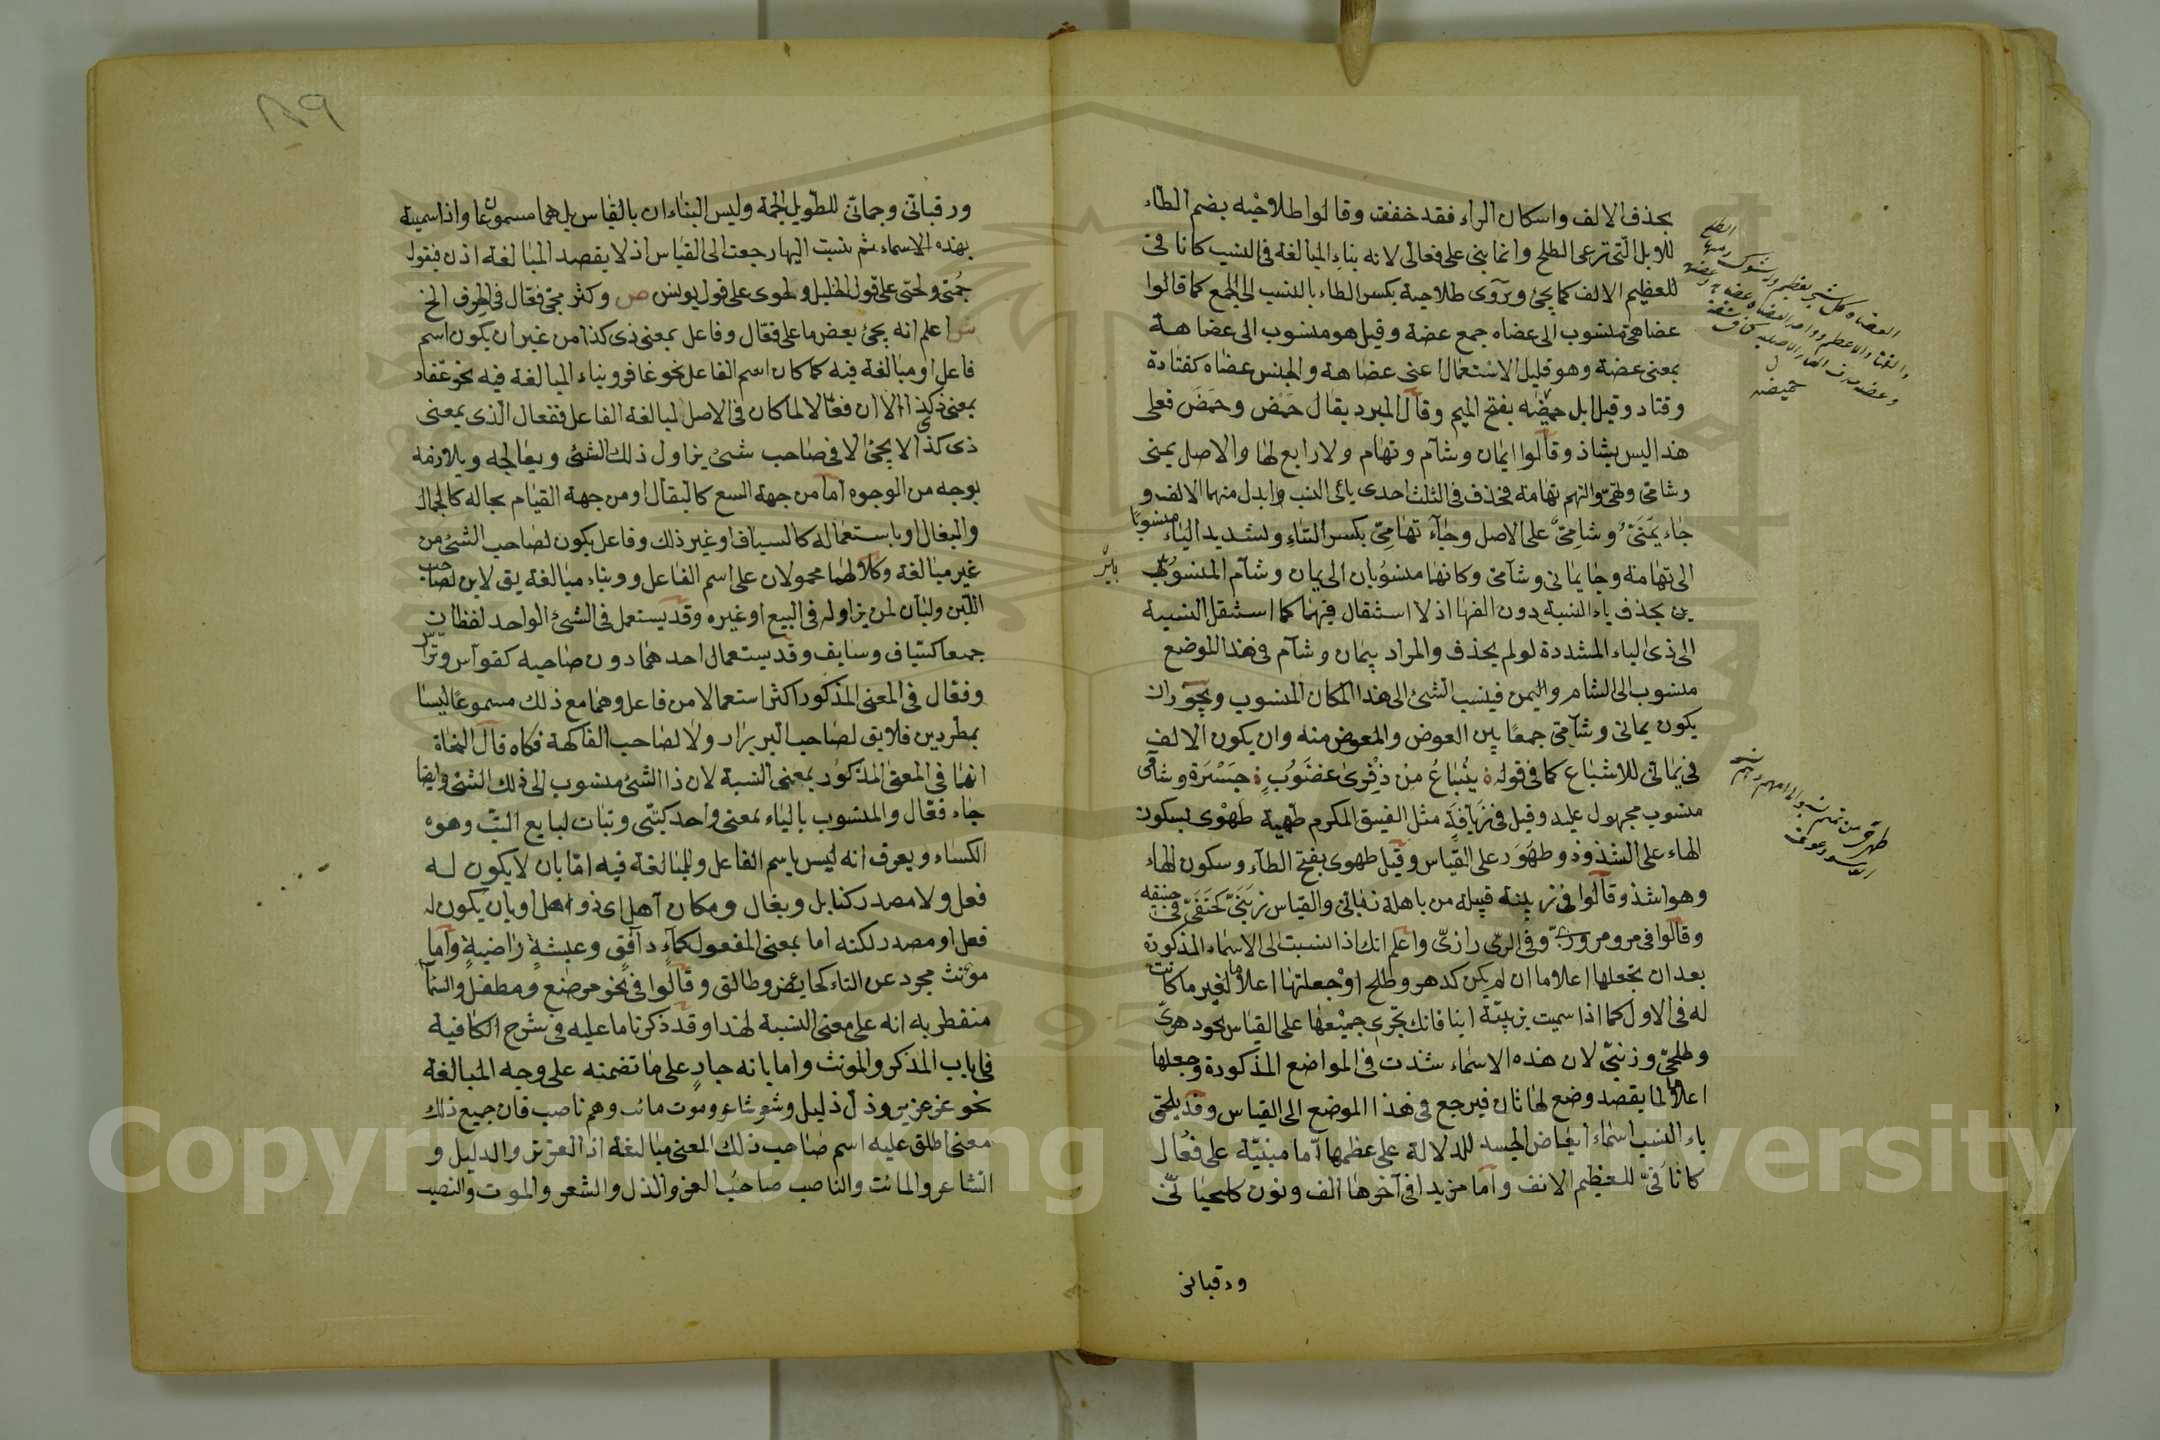 بحذف الالف واسكان الراء فقد خفف وقالوا طلاحيه بضم الطاء
للابل التى ترعى الطلح وانما بنى على فعالى لانه بناء المبالغة فى النسب كانافى
للعظيم الانف كما يجئ ويروى طلاحية بكسر الطاء بالنسب الى الجمع كما قالوا
عضاهى منسوب الى عضاه جمع عضة وقيل هو منسوب الى عضاهة
بمعنى عضة وهو قليل الاستعمال اعنى عضاهة والجنس عضاه كقتادة
وقتاد وقيل ابل حمضيه بفتح الميم وقال المبرد يقال حمض وحمض فعلى
هذا ليس بشاذ وقالوا يمان وشآم وتهام ولا رابع لها والاصل يمنى
وشامى وتهمى والتهم تهامة فحذف فى الثلث احدى يائى النسب وابدل منها الالف و
جاء يمنى وشامى على الاصل وجاء تهامى بكسر التاء وتشديد الياء منسوبا
الى تهامة وجا يمانى وشآمى وكانهما منسوبان الى يمان وشآم المنسوبين
ين بحذف ياء النسبة دون الفها اذ لا استثقال فيهما كما استثقل النسبة
الى ذى الياء المشددة لو لم يحذف والمراد بيمان وشآم فى هذا الموضع
منسوب الى الشام واليمن فينسب الشئ الى هذا المكان المنسوب ويجوز ان
يكون يمانى وشآمى جمعا بين العوض والمعوض منه وان يكون الالف
فى يمانى للاشباع كما فى قوله ينباع من ذفرى غضوب جسرة وشآمى
منسوب مجهول عليه وقيل فى زيافة مثل الفنيق المكرم طهية طهوى بسكون
الهاء على الشذوذ وطهوى على القياس وقيل طهوى بفتح الطاء وسكون الهاء
وهو اشذ وقالوا فى زبينة قبيلة من باهلة زبانى والقياس زبنى كحنفى فى حنيفه
وقالوا فى مرو مروزى وفى الرى رازى واعلم انك اذا نسبت الى الاسماء المذكورة
بعد ان تجعلها اعلاما ان لم يكن كدهر وطلح او جعلتها اعلاما لغير ما كانت
له فى الاول كما اذا سميت بزبينة ابنا فانك تجرى جميعها على القياس نحو دهرى
وطلحى وزبنى لان هذه الاسماء شذت فى المواضع المذكورة وجعلها
اعلاما لما يقصد وضع لها ثان فيرجع فى هذا الموضع الى القياس وقد يلحق
ياء النسب اسماء ابعاض الجسد للدلالة على عظمها اما مبنية على فعال
كانافى للعظيم الانف واما مزيدا فى آخرها الف ونون كلحيانى
ورقبانى
ورقبانى وجمانى للطويل الجمة وليس البناءان بالقياس بل هما مسموعان واذا سميت
بهذه الاسماء ثم نسبت اليها رجعت الى القياس اذ لا يقصد المبالغة اذن فيقول
جمى ولحيى على قول الخليل ولحوى على قول يونس ص وكثر مجئ فعال فى الحرف الخ
ش اعلم انه يجئ بعض ما على فعال وفاعل بمعنى ذى كذا من غير ان يكون اسم
فاعل او مبالغة فيه كما كان اسم الفاعل نحو غافر وبناء المبالغة فيه نحو غفار
بمعنى ذى كذا الا ان فعالا لما كان فى الاصل لمبالغة الفاعل ففعال الذى بمعنى
ذى كذا لا يجئ الا فى صاحب شئ يزاول ذلك الشئ ويعالجه ويلازمه
بوجه من الوجوه اما من جهة البيع كالبقال او من جهة القيام بحاله كالجمال
والبغال او باستعماله كالسياف او غير ذلك وفاعل يكون لصاحب الشئ من
غير مبالغة وكلاهما محمولان على اسم الفاعل وبناء مبالغة يق لابن لصاحب
اللبن ولبان لمن يزاوله فى البيع او غيره وقد يستعمل فى الشئ الواحد لفظان
جمعا كسياف وسايف وقد يستعمل احدهما دون صاحبه كقواس وتراس
وفعال فى المعنى المذكور اكثر استعمالا من فاعل وهما مع ذلك مسموعا ليسا
بمطردين فلا يق لصاحب البر برار ولا لصاحب الفاكهة فكاه قال النحاة
انهما فى المعنى المذكور بمعنى النسبة لان ذا الشئ منسوب الى ذلك الشئ وايضا
جاء فعال والمنسوب بالياء بمعنى واحد كبتى وبتات لبايع البت وهو
الكساء ويعرف انه ليس باسم الفاعل وللمبالغة فيه اما بان لا يكون له
فعل ولا مصدر كنابل وبغال ومكان آهل اى ذو اهل او بان يكون له
فعل او مصدر لكنه اما بمعنى المفعول كماء دافق وعيشة راضية واما
مؤنث مجرد عن التاء كحائض وطالق وقالوا فى نحو مرضع ومطفل والسماء
منفطر به انه على معنى النسبة لهذا وقد ذكرنا ما عليه فى شرح الكافية
فى باب المذكر والمونث واما بانه جار على ما تضمنه على وجه المبالغة
نحو عز عزيز وذل ذليل وشعر شاعر وموت مائت وهم ناصب فان جميع ذلك
معنى اطلق عليه اسم صاحب ذلك المعنى مبالغة اذ العزيز والذليل و
الشاعر والمائت والناصب صاحب العز والذل والشعر والموت والنصب
١٨٩
Copyright © King University